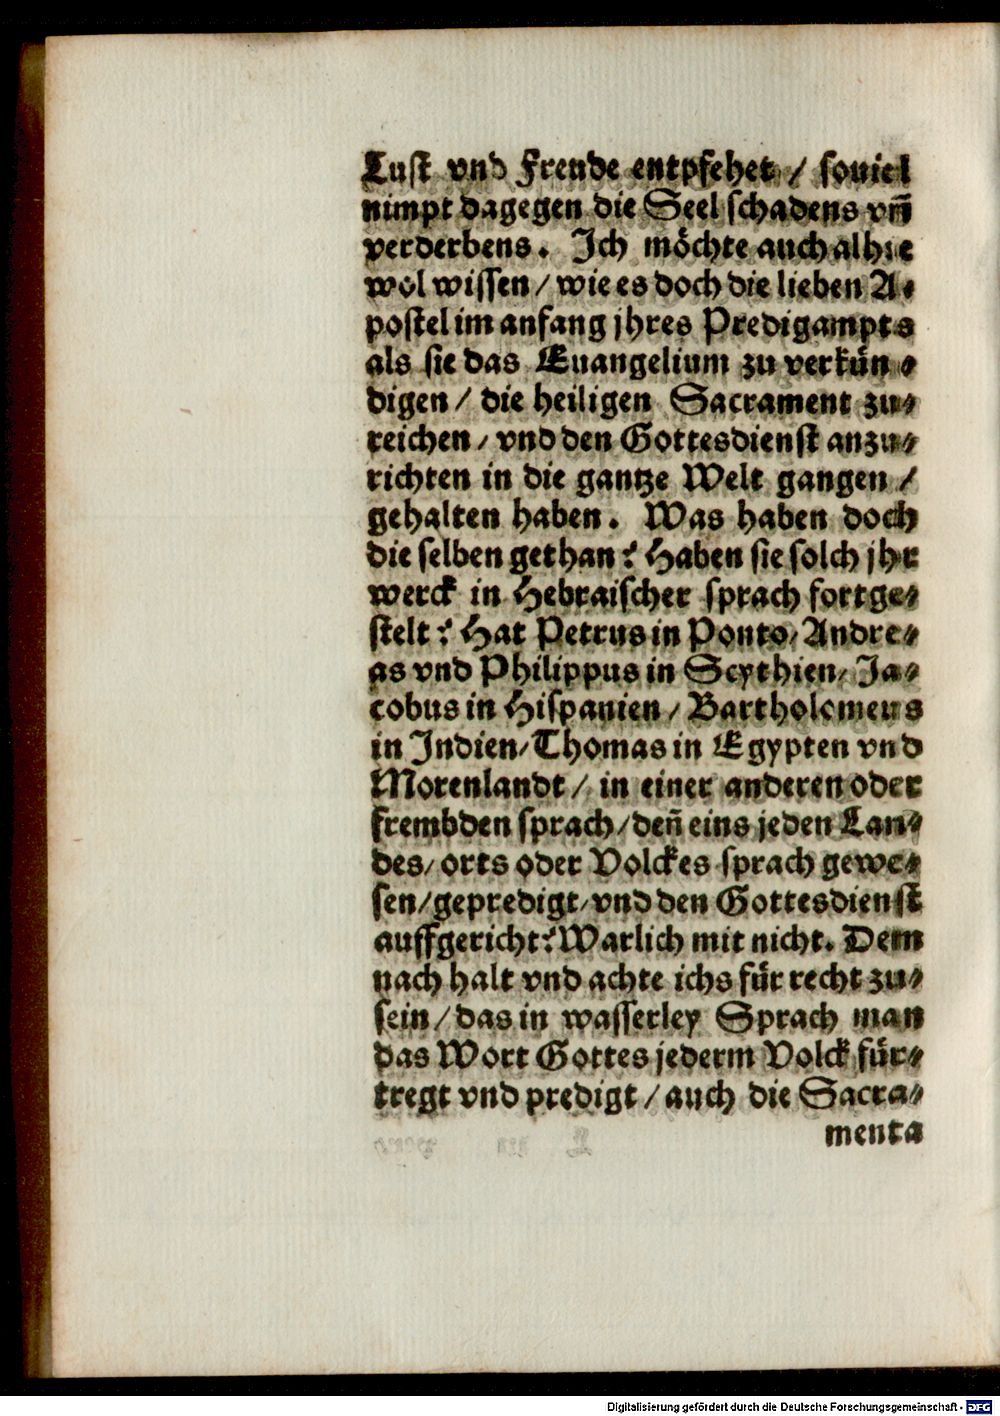 Lust vnd Frende entpfehet / souiel
nimpt dagegen die Seel schadens vñ
verderbens. Jch möchte auch alhie
wol wissen / wie es doch die lieben A⸗
postel im anfang jhres Predigampts
als sie das Euangelium zu verkün⸗
digen / die heiligen Sacrament zu⸗
reichen / vnd den Gottesdienst anzu⸗
richten in die gantze Welt gangen /
gehalten haben. Was haben doch
die selben gethan? Haben sie solch jhr
werck in Hebraischer sprach fortge⸗
stelt? Hat Petrus in Ponto / Andre⸗
as vnd Philippus in Scythien / Ja⸗
cobus in Hispanien / Bartholomeus
in Jndien / Thomas in Egypten vnd
Morenlandt / in einer anderen oder
frembden sprach / deñ eins jeden Lan⸗
des / orts oder Volckes sprach gewe⸗
sen / gepredigt / vnd den Gottesdienst
auffgericht? Warlich mit nicht. Dem
nach halt vnd achte ichs für recht zu⸗
sein / das in wasserley Sprach man
das Wort Gottes jederm Volck für⸗
tregt vnd predigt / auch die Sacra⸗
menta
Digitalisierung gefördert durch die Deutsche Forschungsgemeinschaft - DFG